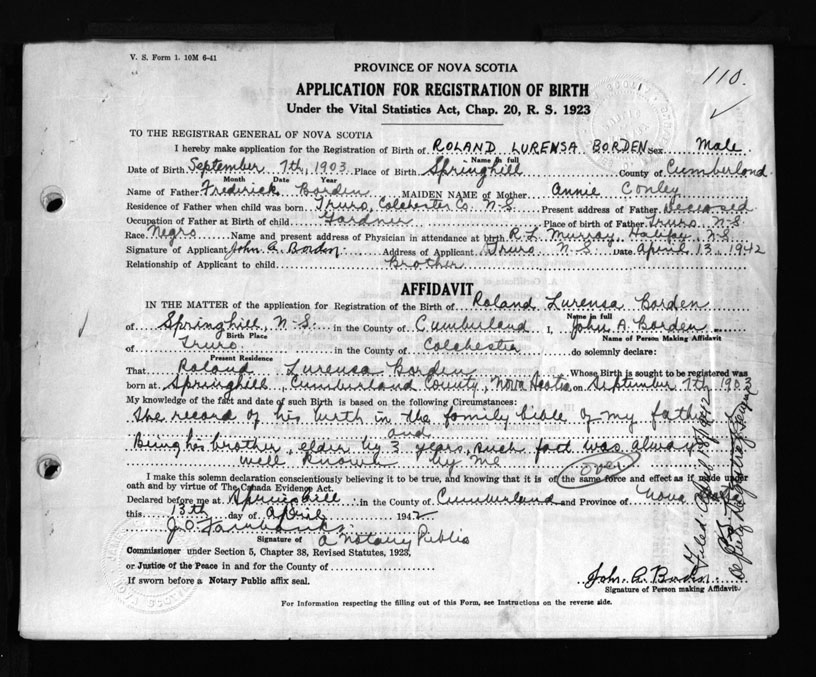 V. S. Form 1. 10M 6-41
110.
PROVINCE OF NOVA SCOTIA
APPLICATION FOR REGISTRATION OF BIRTH
Under the Vital Statistics Act, Chap. 20, R. S. 1923
TO THE REGISTRAR GENERAL OF NOVA SCOTIA
I hereby make application for the Registration of Birth of ROLAND LURENSA BORDEN Sex Male
Name in full
Date of Birth September 7th, 1903 Place of Birth Springhill County of Cumberland
Month Date Year
Name of Father Frederick Borden MAIDEN NAME of Mother Annie Conley
Residence of Father when child was born Truro, Colchester Co. N.S. Present address of Father Deceased
Occupation of Father at Birth of child Gardner Place of birth of Father Truro N.S.
Race Negro Name and present address of Physician in attendance at birth R. L. Murray, Halifax, N.S.
Signature of Applicant John A. Borden Address of Applicant Truro N.S. Date April 13, 1942
Relationship of Applicant to child Brother
AFFIDAVIT
IN THE MATTER of the application for Registration of the Birth of Roland Lurensa Borden
Name in full
of Springhill, N.S. in the County of Cumberland I, John A. Borden
Birth Place Name of Person Making Affidavit
of Truro in the County of Colchester do solemnly declare:
Present Residence
That Roland Lurensa Borden Whose Birth is sought to be registered was
born at Springhill, Cumberland County, Nova Scotia on September 7th, 190
My knowledge of the fact and date of such Birth is based on the following Circumstances:
The record of his birth in the family bible of my father
and
Being his brother, elder by 3 years, such fact was always
well known by me
over
I make this solemn declaration conscientiously believing it to be true, and knowing that it is of the same force and effect as if made under
oath and by virtue of The Canada Evidence Act.
Declared before me at Springhill in the County of Cumberland and Province of Nova Scotia
this 13th day of April 1942
J. O. Fairbanks
Signature of a Notary Public
Commissioner under Section 5, Chapter 38, Revised Statutes, 1923,
or Justice of the Peace in and for the County of
If sworn before a Notary Public affix seal.
John A. Borden
Signature of Person making Affidavit
For Information respecting the filling out of this Form, see Instructions on the reverse side.
Filed April 18/1942
Deputy Registrar